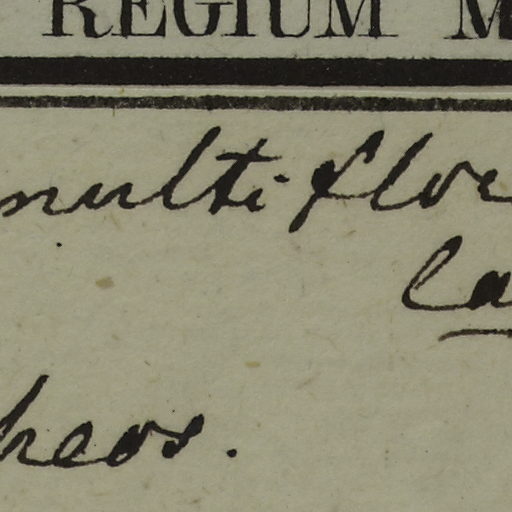 REGIUM M
multiflor
La
heos.